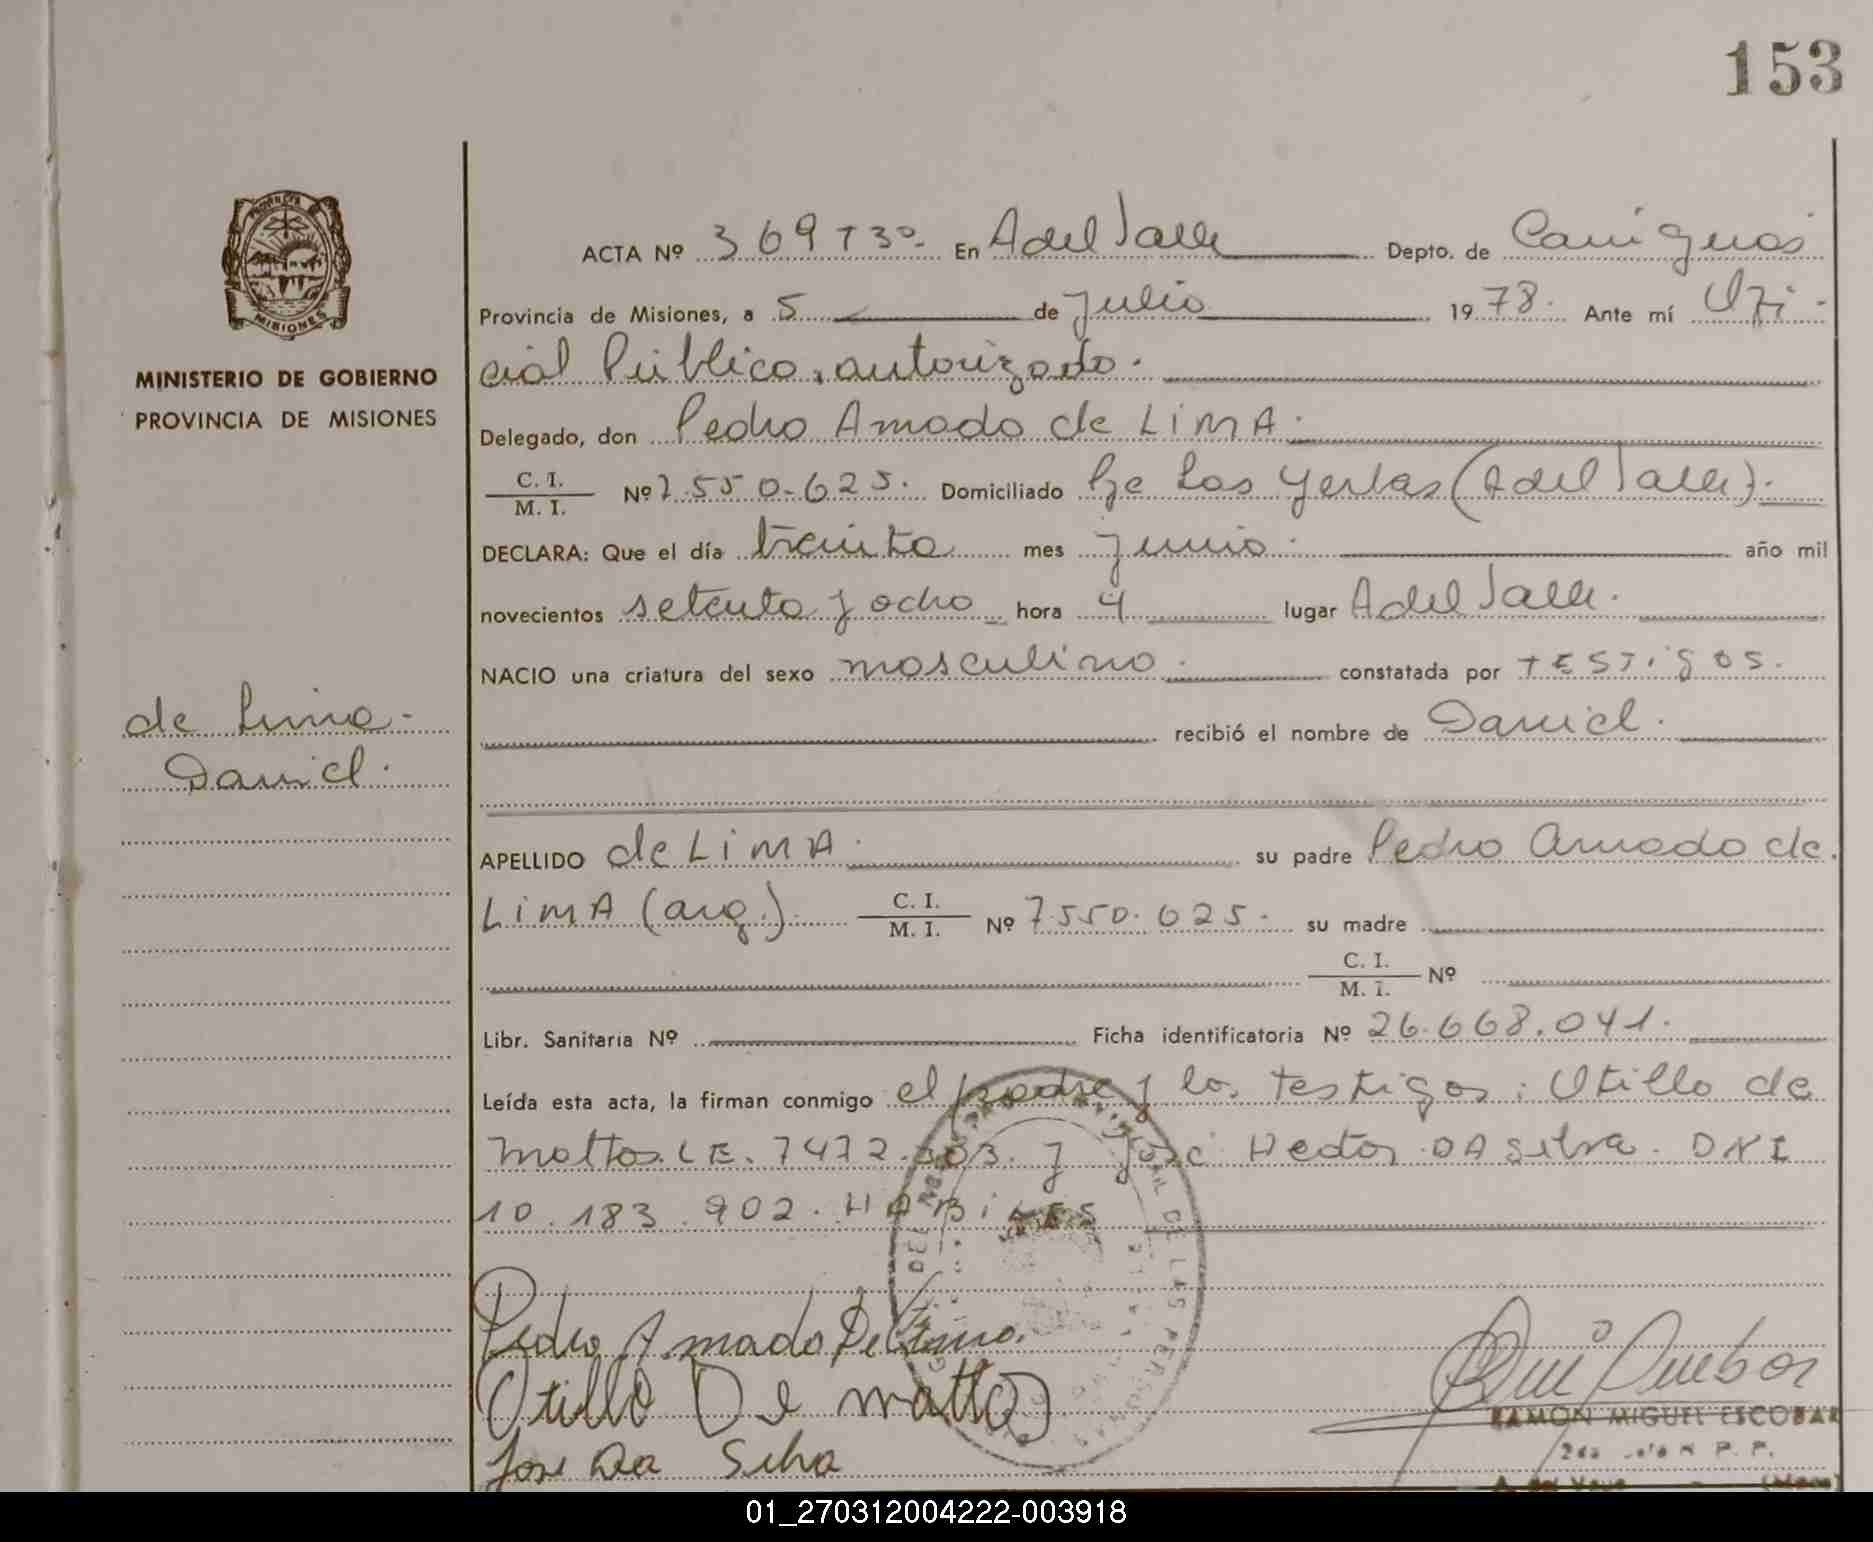 153
PROVINCIA DE
MISIONES
MINISTERIO DE GOBIERNO
PROVINCIA DE MISIONES
de Lima.
Daniel.
ACTA Nº 369 T 3º. En A del Valle Depto. de Cainguas
Provincia de Misiones, a 5 de julio 1978. Ante mí Ofi-
cial Público, autorizado.
Delegado, don Pedro Amado de LiMA.
C. I.
M. I. Nº 7.550.625. Domiciliado Las Yerbas (A del Valle).
DECLARA: Que el día treinta mes junio. año mil
novecientos setenta y ocho hora 4 lugar A del Valle.
NACIO una criatura del sexo masculino. constatada por TESTigos.
recibió el nombre de Daniel.
APELLIDO de LiMA. su padre Pedro Amado de
LiMA (arg.). C. I.
M. I. Nº 7.550.625. su madre
C. I.
M. I. Nº
Libr. Sanitaria Nº Ficha identificatoria Nº 26.668.041.
Leída esta acta, la firman conmigo el padre y los testigos: Otillo de
Mattos. LE. 7472. y José Hector DA Silva. DNI
10.183.902. HABiLES
DEL DE LAS PERSONAS
Pedro Amado De Lima.
Otillo De matto
Jose Da Silva
RAMON MIGUEL ESCOBAR
01_270312004222-003918